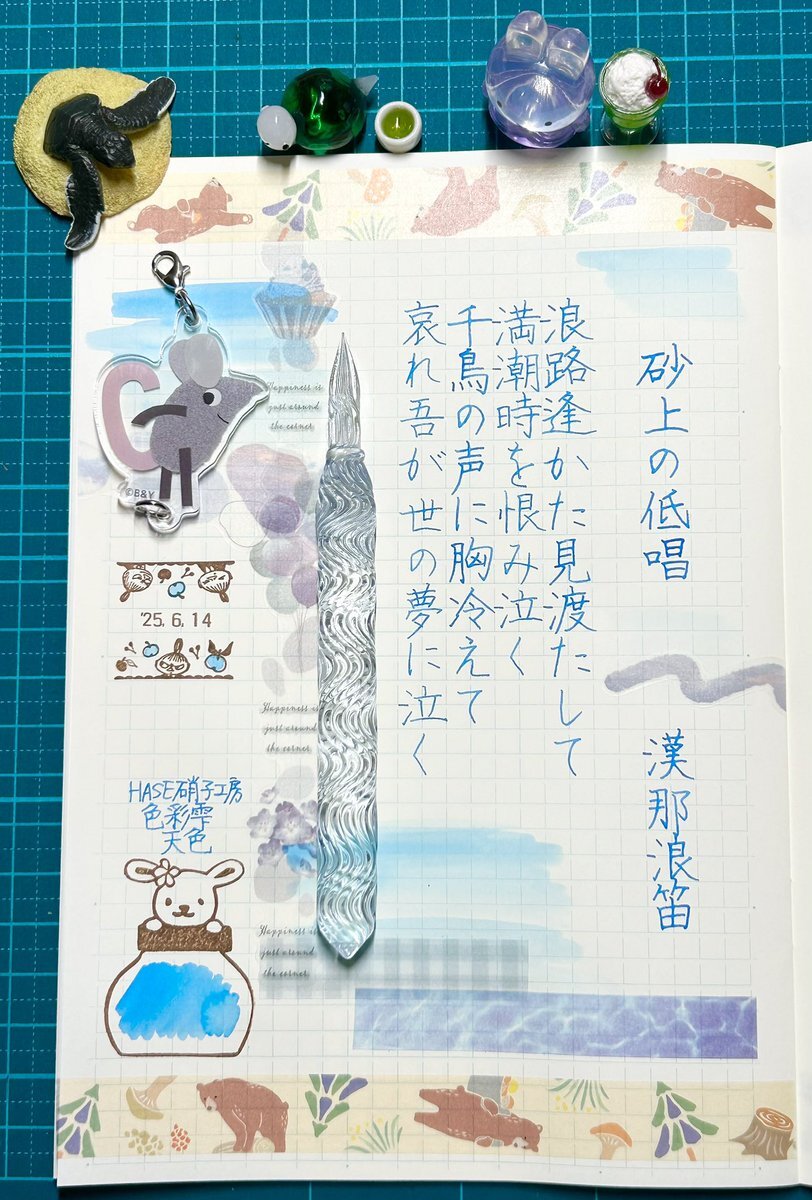 砂上の低唱
漢那浪笛
浪路逢かた見渡たして
満潮時を恨み泣く
千鳥の声に胸冷えて
哀れ吾が世の夢に泣く
Happiness is
just around
the corner
Happiness is
just around
the corner
Happiness is
just around
the corner
G
©B&Y
'25.6.14
HASE硝子工房
色彩雫
天色